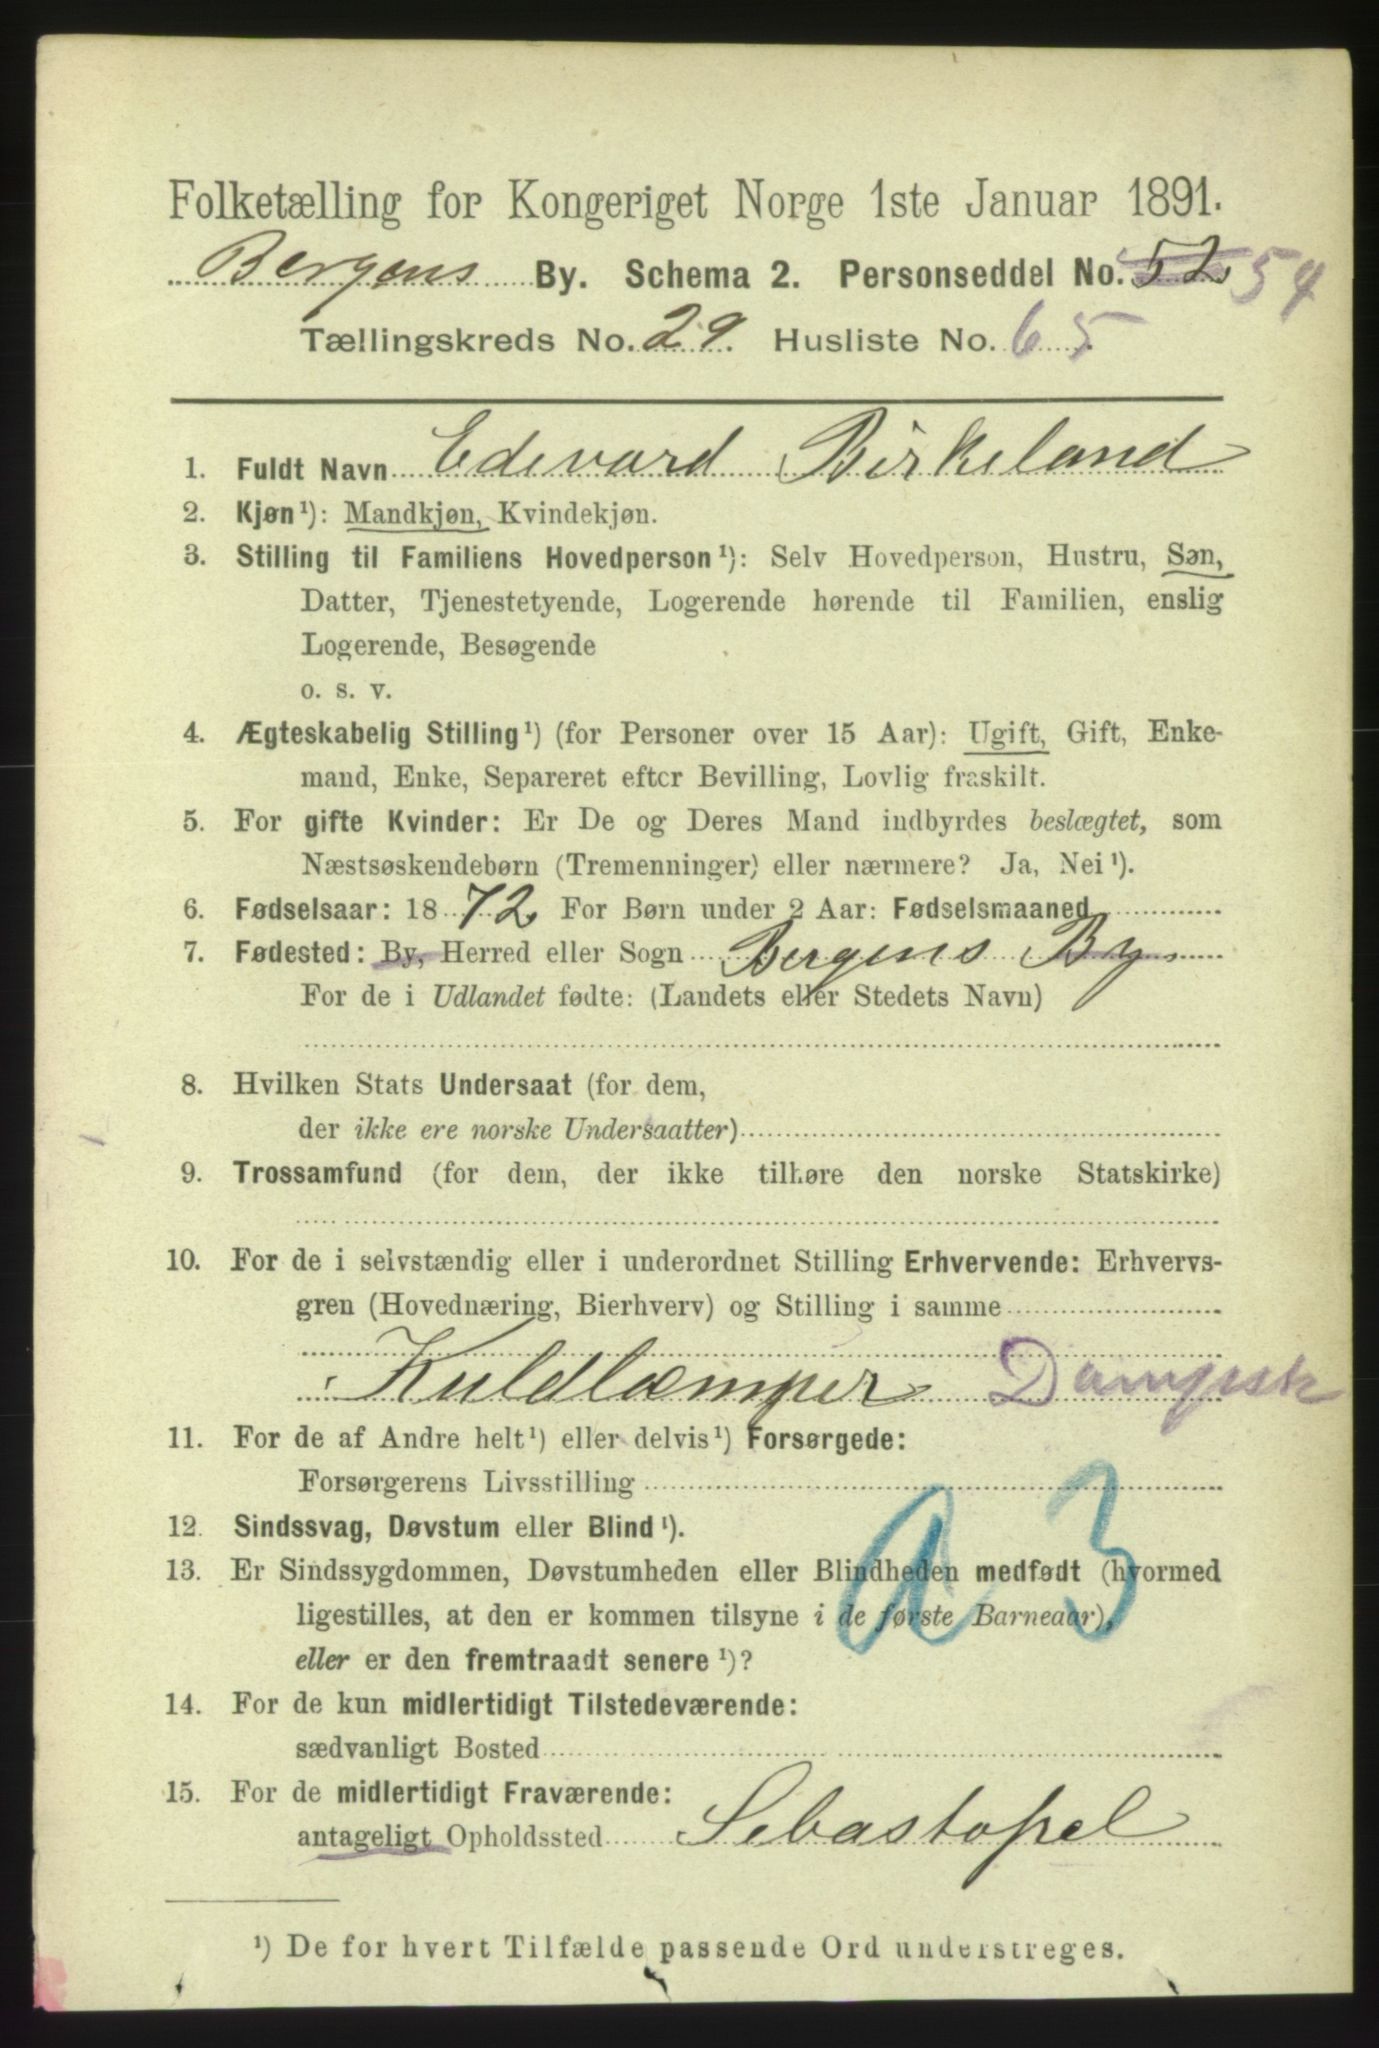 Folketælling for Kongeriget Norge 1ste Januar 1891.
Bergens By. Schema 2. Personseddel No. 52 54
Tællingskreds No. 29. Husliste No. 65.
1. Fuldt Navn Edevard Birkeland
2. Kjøn¹): Mandkjøn, Kvindekjøn.
3. Stilling til Familiens Hovedperson¹): Selv Hovedperson, Hustru, Søn,
Datter, Tjenestetyende, Logerende hørende til Familien, enslig
Logerende, Besøgende
o. s. v.
4. Ægteskabelig Stilling¹) (for Personer over 15 Aar): Ugift, Gift, Enke-
mand, Enke, Separeret efter Bevilling, Lovlig fraskilt.
5. For gifte Kvinder: Er De og Deres Mand indbyrdes beslægtet, som
Næstsøskendebørn (Tremenninger) eller nærmere? Ja, Nei¹).
6. Fødselsaar: 1872 For Børn under 2 Aar: Fødselsmaaned
7. Fødested: By, Herred eller Sogn Bergens By
For de i Udlandet fødte: (Landets eller Stedets Navn)
8. Hvilken Stats Undersaat (for dem,
der ikke ere norske Undersaatter)
9. Trossamfund (for dem, der ikke tilhøre den norske Statskirke)
10. For de i selvstændig eller i underordnet Stilling Erhvervende: Erhvervs-
gren (Hovednæring, Bierhverv) og Stilling i samme
Kuldlæmper Dampsk
11. For de af Andre helt¹) eller delvis¹) Forsørgede:
Forsørgerens Livsstilling
a 3
12. Sindssvag, Døvstum eller Blind¹).
13. Er Sindssygdommen, Døvstumheden eller Blindheden medfødt (hvormed
ligestilles, at den er kommen tilsyne i de første Barneaar),
eller er den fremtraadt senere¹)?
14. For de kun midlertidigt Tilstedeværende:
sædvanligt Bosted
15. For de midlertidigt Fraværende:
antageligt Opholdssted Sebastopel
¹) De for hvert Tilfælde passende Ord understreges.